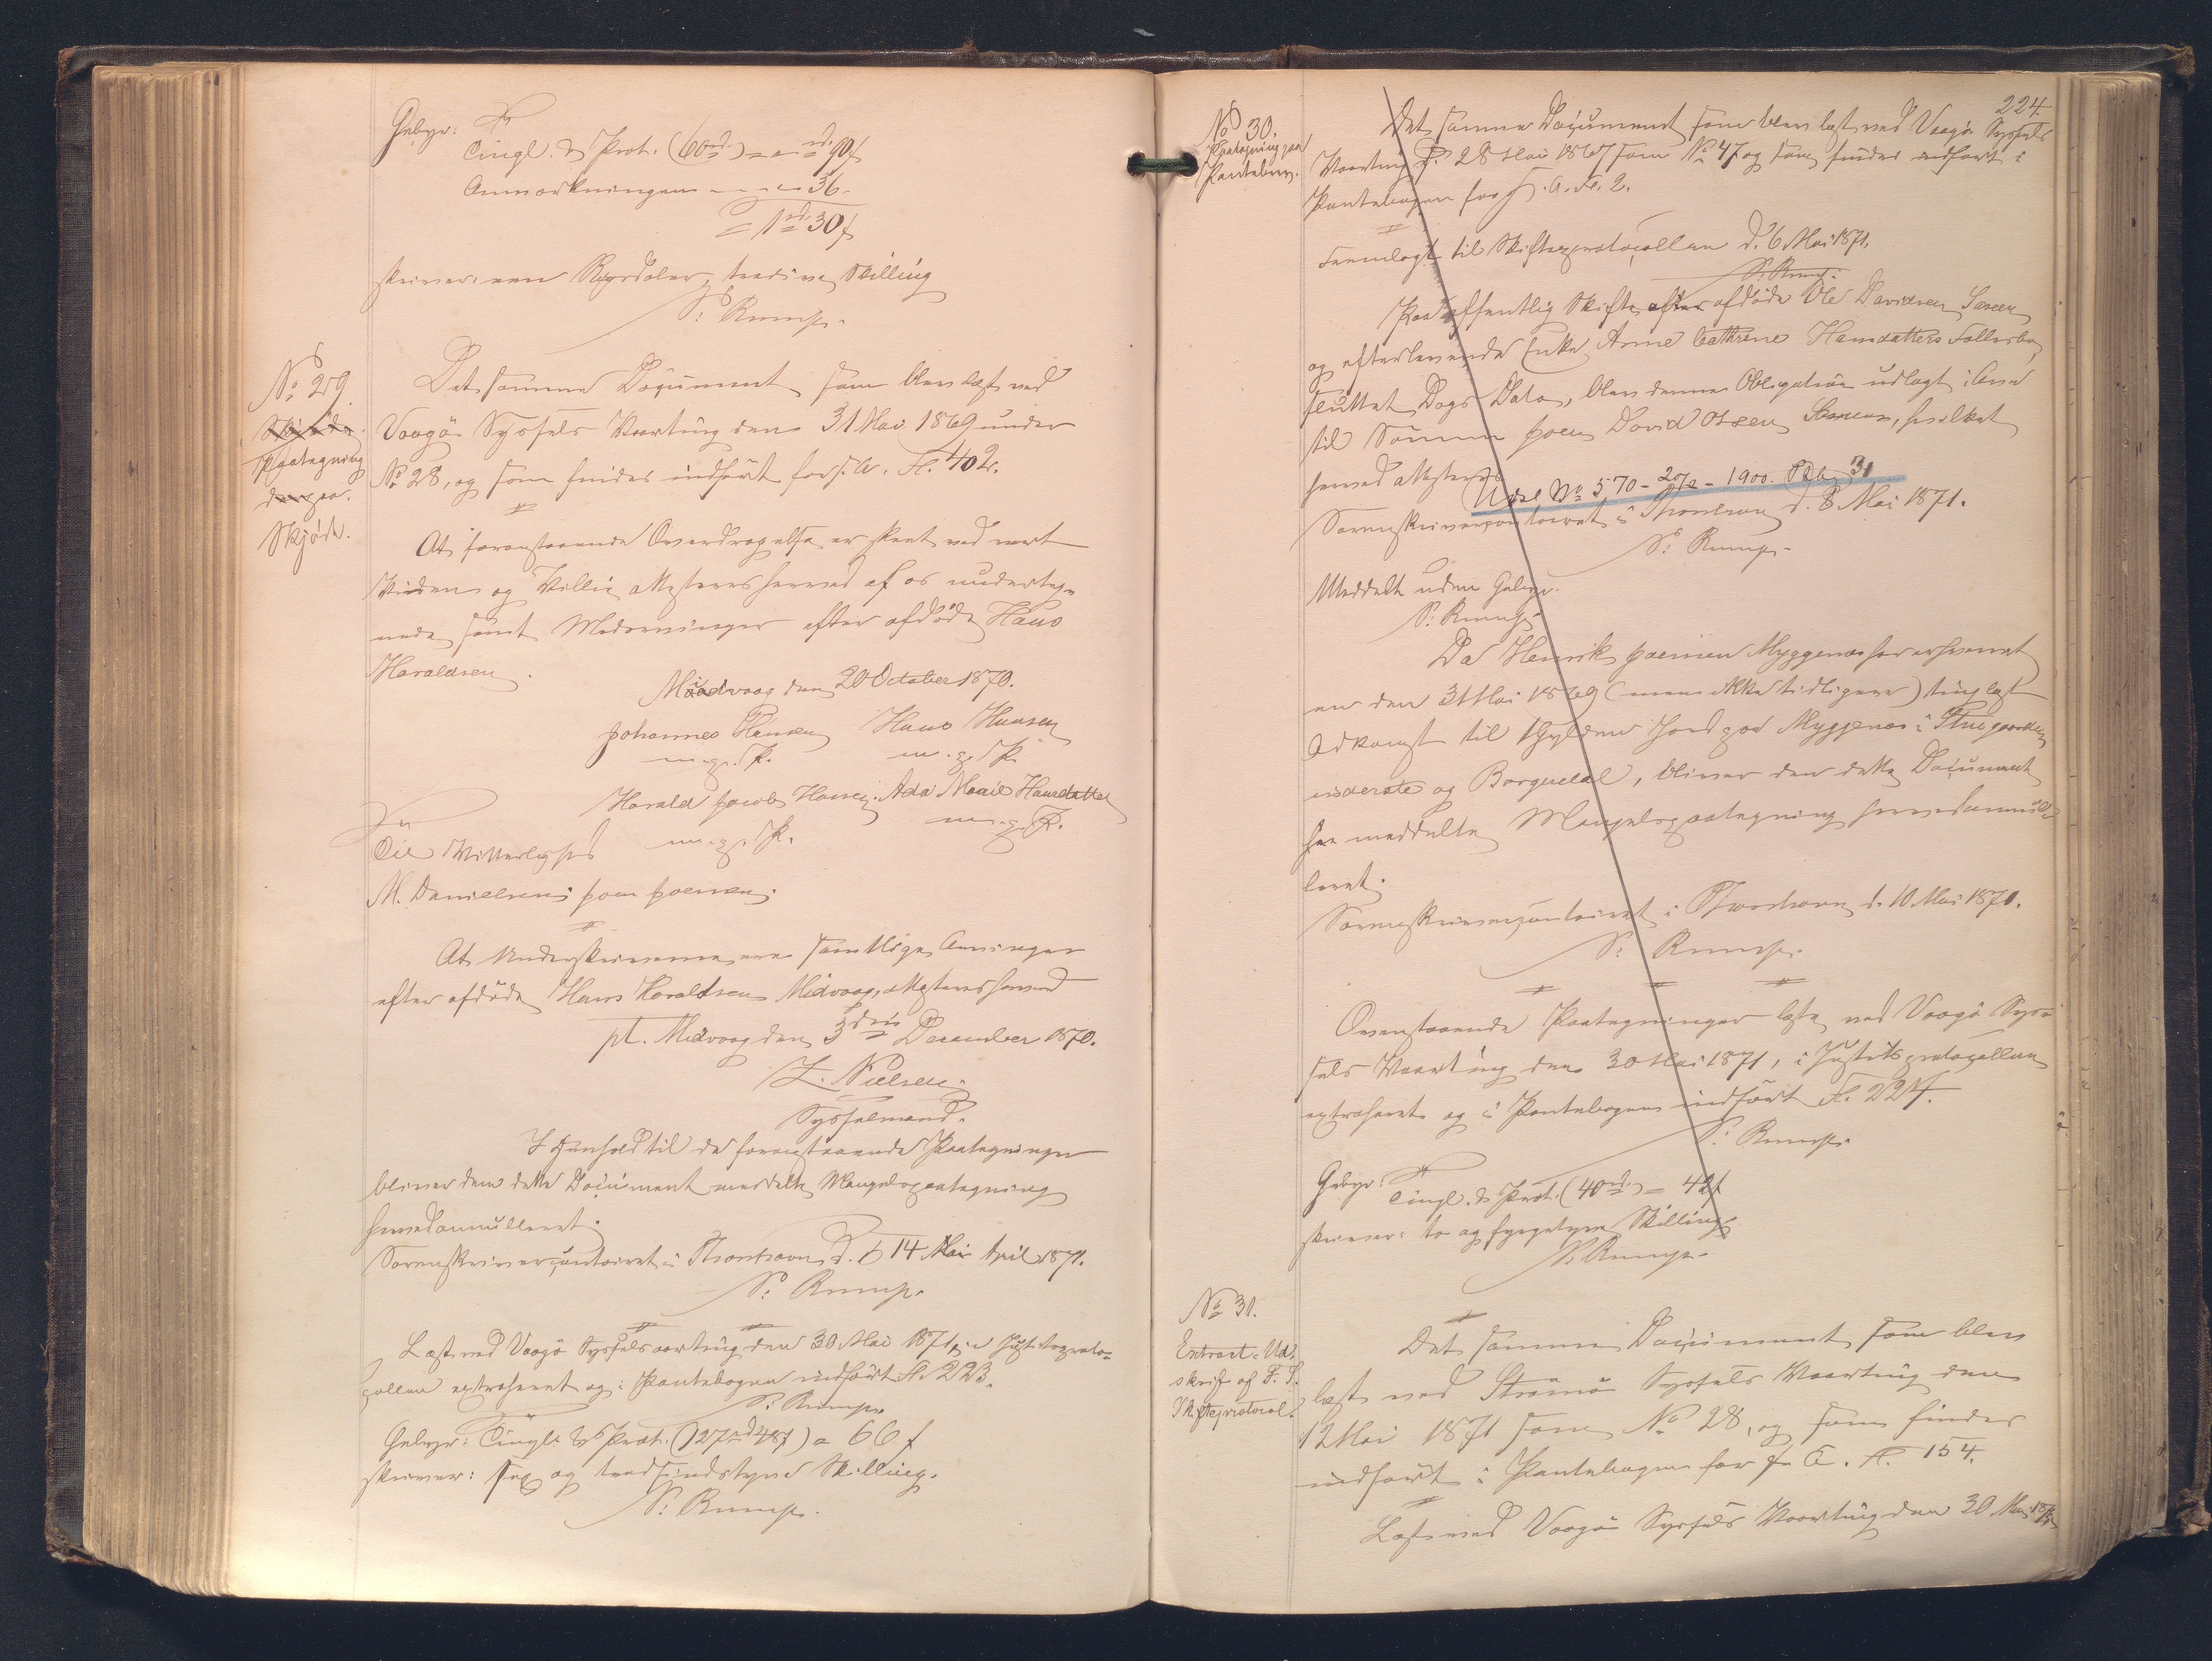 Gebyr:
Tingl. & Prot. (60rd.) = " rd. 90 f
Anmærkningen — — " 36 -
= 1 rd. 30 f
skriver: een Rigsdaler, tredive Skilling
S: Rump.
No 29.
Skjøde
Paategning
paa
Skjøde.
Det samme Document som blev læst ved
Vaagø Syssels Vaarting den 31 Mai 1869 under
No 28, og som findes indført fors. A. Fl. 402.
At foranstaaende Overdragelse er skeet ved vort
Vidende og Villie attesteres herved af os underteg-
nede samt Medarvinger efter afdøde Hans
Haraldsen.
Midvaag den 20 October 1870.
Johannes Hansen Hans Hansen
m. p. P. m. p. P.
Harald Jacob Hansen. Ada Marie Hansdatter
m. p. P. m. p. P.
Til Vitterlighed
M. Danielsen; Joen Joensen.
At Underskriverne ere samtlige Arvinger
efter afdøde Hans Haraldsen Midvaag, attesteres herved
pt. Midvaag den 3die December 1870.
L. Nielsen
Sysselmand.
I Henhold til de foranstaaende Paategninger
bliver den dette Document meddelte Mangelspaategning
herved annulleret.
Sorenskrivercontoiret i Thorshavn d. 14 Mai April 1871.
S: Rump.
Læst ved Vaagø Syssels vaarting den 30 Mai 1871, i Justitsproto-
collen extraheret og i Pantebogen indført Fl. 223.
S: Rump.
Gebyr: Tingl. & Prot. (127rd 48f) = 66 f
skriver: sex og tredsindstyve Skilling.
S: Rump.
224.
No 30.
Paategning paa
Pantebrev.
Det samme Document som blev læst ved Vaagø Syssels
Vaarting d. 28 Mai 1867 som No 47 og som findes indført i
Pantebogen for f. A. Fl. 2.
Fremlagt til Skifteprotocollen d. 6 Mai 1871.
S: Rump.
Paa offentlig Skifte efter afdøde Ole Davidsen Sareen
og efterlevende Enke Anne Cathrine Hansdatters Fællesbo,
sluttet Dags Dato, blev denne Obligation udlagt i Arv
til Sønnen Joen David Olsen, hvilket
herved attesteres
Udsl No 570 - 20/12 - 1900. Pbg 31
Sorenskrivercontoiret i Thorshavn d. 8 Mai 1871.
S: Rump.
Meddelt uden Gebyr.
S: Rump.
Da Henrik Joensen Myggenæs har erhvervet
en den 31 Mai 1869 (men ikke tidligere) tinglæst
Adkomst til 1 Gylden Jord paa Myggenæs i
og Borgedal, bliver den dette Document
her meddelte Mangelspaategning herved annul-
leret.
Sorenskrivercontoiret i Thorshavn d. 10 Mai 1871.
S: Rump.
Ovenstaaende Paategninger læste ved Vaagø Sys-
sels Vaarting den 30 Mai 1871, i Justitsprotocollen
extraheret og i Pantebogen indført Fl. 224.
S: Rump.
Gebyr: Tingl. & Prot. (40rd.) = 42 f
skriver: to og fyrgetyve Skilling.
S: Rump.
No 31.
Extract-Ud-
skrift af F. S.
Skifteprotocol.
Det samme Document som blev
læst ved Strømø Syssels Vaarting den
12 Mai 1871 som No 28, og som findes
indført i Pantebogen for f. A. Fl. 154.
Læst ved Vaagø Syssels Vaarting den 30 Mai 1871